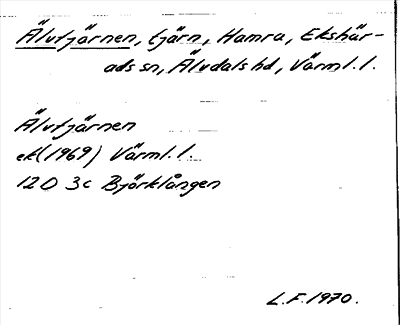 Älvtjärnen, tjärn, Hamra, Ekshär-
ads sn, Älvdals hd, Värml. l.
Älvtjärnen
ek(1969) Värml. l.
12D 3c Björklången
L.F. 1970.